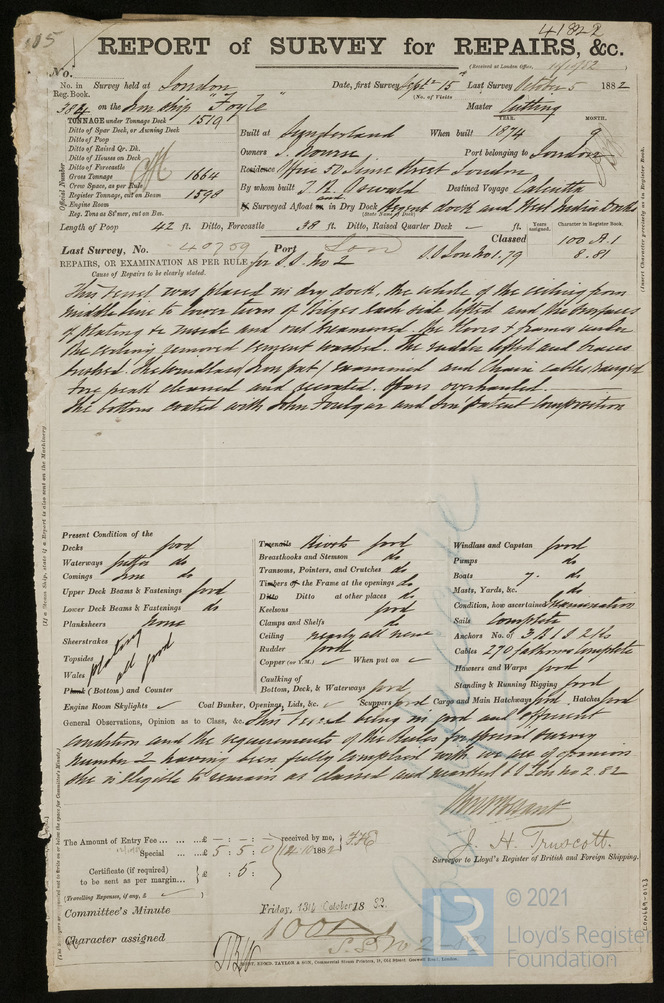 41822
105
REPORT of SURVEY for REPAIRS, &c.
(Received at London Office, 12/10/82)
No.
No. in Reg. Book. Survey held at London Date, first Survey Sept 12 15th Last Survey October 5 1882
(No. of Visits )
384 on the Iron Ship "Foyle" Master Cutting
TONNAGE under Tonnage Deck 1519
Ditto of Spar Deck, or Awning Deck
Ditto of Poop
Ditto of Raised Qr. Dk.
Ditto of Houses on Deck
Ditto of Forecastle
Gross Tonnage 1664
Crew Space, as per Rule
Register Tonnage, cut on Beam 1598
Engine Room
Reg. Tons as St'mer, cut on Bm.
Official Number
YEAR. MONTH.
Built at Sunderland When built 1874 9
Owners J. Nourse Port belonging to London
Residence 50 Lime Street London
By whom built T. R. Oswald Destined Voyage Calcutta
If Surveyed Afloat and in Dry Dock Regent dock and West India Docks
(State Name of Dock)
Length of Poop 42 ft. Ditto, Forecastle 38 ft. Ditto, Raised Quarter Deck ft.
Years assigned. Character in Register Book.
Last Survey, No. 40709 Port Lon Classed 100 A.1
REPAIRS, OR EXAMINATION AS PER RULE for S.S. No 2 S.S. Lon No 1.79 8.81
Cause of Repairs to be clearly stated.
This vessel was placed in dry dock, the whole of the ceiling from
middle line to lower turn of bilges each side lifted and the surfaces
of plating &c inside and out examined. The floors & frames under
the ceiling removed cement washed. The rudder lifted and braces
bushed. The windlass examined and chain cables ranged
fore peak cleaned and Spars overhauled.
The bottom coated with John and Son patent composition
Present Condition of the
Decks good
Waterways gutter do
Comings Iron do
Upper Deck Beams & Fastenings good
Lower Deck Beams & Fastenings do
Planksheers none
Sheerstrakes
Topsides plating
Wales all good
Plank (Bottom) and Counter
Engine Room Skylights Coal Bunker, Openings, Lids, &c. Scuppers good Cargo and Main Hatchways good Hatches good
Treenails Rivets good
Breasthooks and Stemson do
Transoms, Pointers, and Crutches do
Timbers of the Frame at the openings do
Ditto Ditto at other places do
Keelsons good
Clamps and Shelfs do
Ceiling nearly all new
Rudder good
Copper (or Y.M.) When put on
Caulking of Bottom, Deck, & Waterways good
Windlass and Capstan good
Pumps do
Boats 7. do
Masts, Yards, &c. do
Condition, how ascertained Examination
Sails Complete
Anchors No. of 3 B 1 S 2 Ks
Cables 270 fathoms Complete
Hawsers and Warps good
Standing & Running Rigging good
General Observations, Opinion as to Class, &c. This vessel being in good and efficient
condition and the requirements of the Rules for Special Survey
number 2 having been fully complied with we are of opinion
she is eligible to remain as classed and marked S.S. Lon No 2. 82
J. H. Truscott.
Surveyor to Lloyd's Register of British and Foreign Shipping.
The Amount of Entry Fee ... £ - : - : - received by me,
Special ... £ 5 : 5 : 0 12/10 1882
Certificate (if required) to be sent as per margin... £ : 5 :
(Travelling Expenses, if any, £ )
Committee's Minute Friday, 13th October 18 82.
Character assigned 100 A 1
S.S. No 2 - 82
PRINT, EDWD. TAYLOR & SON, Commercial Steam Printers, 19, Old Street, Goswell Road, London.
(If a Steam Ship, state if a Report is also sent on the Machinery.)
(The Surveyors are requested not to write on or below the space for Committee's Minute.)
(Insert Character precisely as in Register Book.)
LON669-0123
© 2021
LR
Lloyd's Register
Foundation